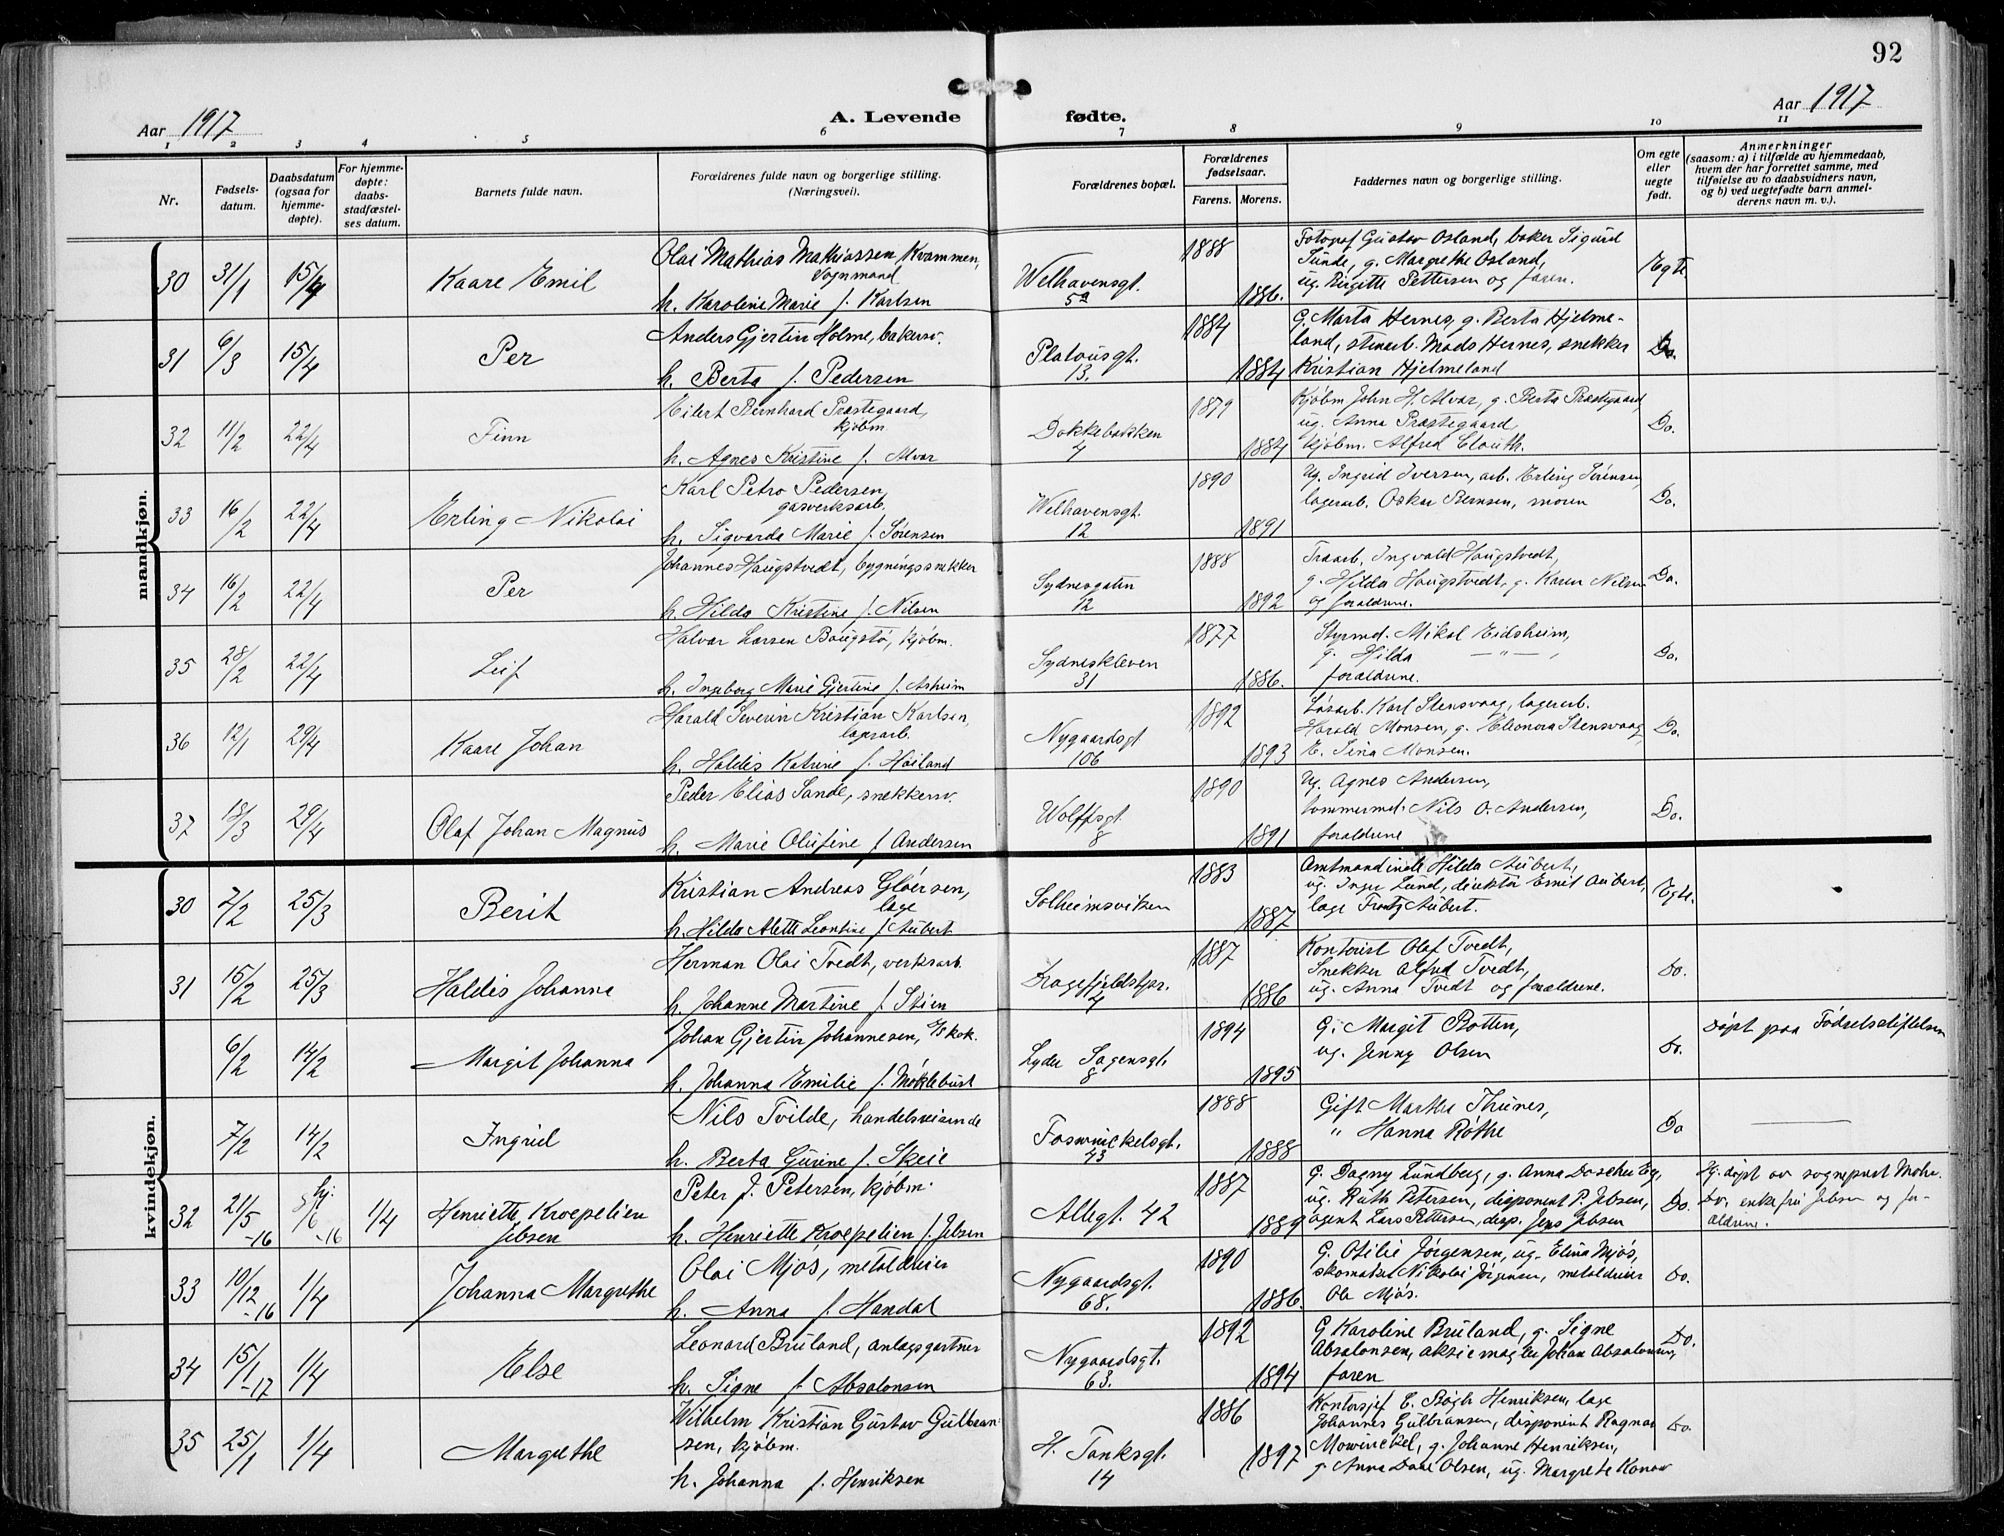 92
Aar 1917
A. Levende fødte.
Aar 1917
1 2 3 4 5 6 7 8 9 10 11
Nr.
Fødsels-
datum.
Daabsdatum
(ogsaa for
hjemme-
døpte).
For hjemme-
døpte:
daabs-
stadfæstel-
ses datum.
Barnets fulde navn.
Forældrenes fulde navn og borgerlige stilling.
(Næringsvei).
Forældrenes bopæl.
Forældrenes
fødselsaar.
Farens. Morens.
Faddernes navn og borgerlige stilling.
Om egte
eller
uegte
født.
Anmerkninger
(saasom: a) i tilfælde av hjemmedaab,
hvem der har forrettet samme, med
tilføielse av to daabsvidners navn,
og b) ved uegtefødte barn anmel-
derens navn m. v.).
mandkjøn.
30 31/1 15/4 Kaare Emil
Olai Mathias Mathiassen Kvammen,
vognmand
h. Karoline Marie f. Karlsen
Welhavensgt.
5a
1888
1886.
Fotograf Gustav Osland, baker Sigurd
Sunde, g. Margrethe Osland,
ug. Birgitte Pettersen og faren.
Egte
31 6/3 15/4 Per
Anders Gjertin Holme, bakersv.
h. Berta f. Pedersen
Platousgt.
13.
1884
1884
G. Marta Hernes, g. Berta Hjelme-
land, stenarb. Mads Hernes, snekker
Kristian Hjelmeland
Do.
32 11/2 22/4 Finn
Eilert Bernhard Præstegaard,
kjøbm
h. Agnes Kristine f. Alvar
Dokkebakken
4
1879
1884
Kjøbm John H. Alvar, g. Berta Præstegaard,
ug. Anna Præstegaard
kjøbm. Alfred Clouth.
Do.
33 16/2 22/4 Erling Nikolai
Karl Petro Pedersen
gasverksarb.
h. Sigvarda Marie f. Sørensen
Welhavensgt.
12
1890
1891
Ug. Ingrid Iversen, arb. Erling Sørensen,
lagerarb. Oskar Bernsen, moren
Do.
34 16/2 22/4 Per
Johannes Haugstvedt, bygningssnekker
h. Hilda Kristine f. Nilsen
Sydnesgaten
12
1888
1892
Traarb. Ingvald Haugstvedt,
g. Hilda Haugstvedt, g. Karen Nilsen
og forældrene.
Do.
35 28/2 22/4 Leif
Halvar Larsen Baugstø, kjøbm.
h. Ingeborg Marie Gjertine f. Asheim
Sydneskleven
31
1877
1886.
Styrmd. Mikal Eidsheim,
g. Hilda — " — ,
forældrene.
Do.
36 12/1 29/4 Kaare Johan
Harald Severin Kristian Karlsen,
lagerarb.
h. Haldis Katrine f. Høiland
Nygaardsgt
106
1892
1893
Løsarb. Karl Stensvaag, lagerarb.
Harald Monsen, g. Eleonora Stensvaag,
E. Sina Monsen.
Do.
37 18/3 29/4 Olaf Johan Magnus
Peder Elias Sande, snekkersv.
h. Marie Olufine f Andersen
Wolffsgt.
8
1890
1891
Ug. Agnes Andersen,
tømmermd. Nils O. Andersen,
forældrene
Do.
kvindekjøn.
30 2/2 25/3 Berit
Kristian Andreas Gløersen,
læge
h. Hilda Alette Leontine f Aubert
Solheimsviken
1883
1887
Amtmandinde Hilda Aubert,
ug. Inger Lund, direktør Emil Aubert,
læge Frantz Aubert.
Egte.
31 15/2 25/3 Haldis Johanna
Herman Olai Tvedt, verksarb.
h. Johanne Martine f. Skien
Dragefjeldstpr.
4
1887
1886
Kontorist Olaf Tvedt,
Snekker Alfred Tvedt,
ug. Anna Tvedt og forældrene.
Do.
6/2 14/2 Margit Johanna
Johan Gjertin Johannesen, D/S kok.
h. Johanna Emilie f. Møklebust
Lyder Sagensgt.
8
1894
1895
G. Margit Botten,
ug. Jenny Olsen
Do.
Døpt paa Fødselsstiftelsen
7/2 14/2 Ingrid
Nils Tvilde, handelsreisende
h. Berta Gurine f. Skeie
Foswinckelsgt.
43
1888
1888
Gift Martha Thunes,
" Hanna Røthe
Do
32 21/5 -16 hj. 8/6 -16 1/4 Henriette Kroepelien
Jebsen
Peter J. Petersen, kjøbm.
h. Henriette Kroepelien f. Jebsen
Allegt. 42
1887
1889
G. Dagny Lundberg, g. Anna Doscher Eg,
ug. Ruth Petersen, disponent P. Jebsen,
agent Lars Pettersen, disp. Jens Jebsen
Do.
Hj. døpt av sogneprest Mohr
Do. enkefru Jebsen og for-
ældrene.
33 10/12 -16 1/4 Johanna Margrethe
Olai Mjøs, metaldreier
h. Anna f. Handal
Nygaardsgt.
68.
1890
1886.
G. Otilie Jørgensen, ug. Elina Mjøs,
skomaker Nikolai Jørgensen, metaldreier
Ole Mjøs.
Do.
34 15/1 -17 1/4 Else
Leonard Bruland, anlægsgartner
h. Signe f. Absalonsen
Nygaardsgt.
63.
1892
1894
G Karoline Bruland, g. Signe
Absalonsen, aksiemægler Johan Absalonsen,
faren
Do.
35 25/1 1/4 Margrethe
Wilhelm Kristian Gustav Gulbran-
sen, kjøbm.
h. Johanna f. Henriksen
H. Tanksgt.
14
1886
1897
Kontorsjef E. Bøgh Henriksen, læge
Johannes Gulbransen, disponent Ragnar
Mowinckel, g. Johanne Henriksen,
g Anna Daae Olsen, ug. Margrete Konow
Do.